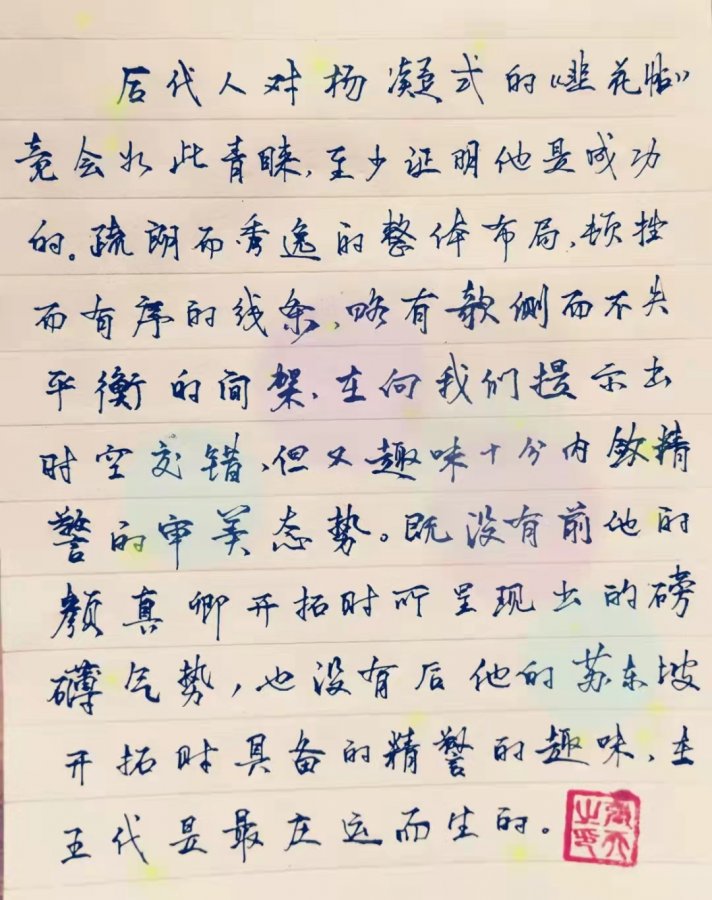 后代人对杨凝式的《韭花帖》
竟会如此青睐,至少证明他是成功
的。疏朗而秀逸的整体布局,顿挫
而有序的线条,略有欹侧而不失
平衡的间架,在向我们提示出
时空交错,但又趣味十分内敛精
警的审美态势。既没有前他的
颜真卿开拓时所呈现出的磅
礴气势,也没有后他的苏东坡
开拓时具备的精警的趣味,在
五代是最应运而生的。